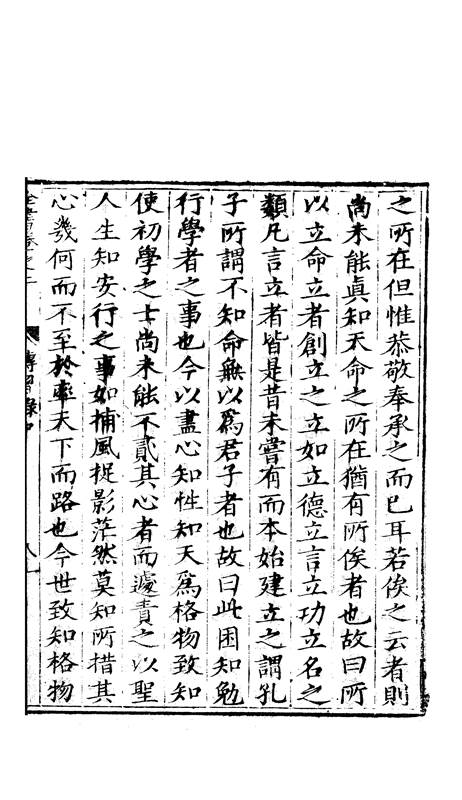 之所在但惟恭敬奉承之而已耳若俟之云者則
尚未能眞知天命之所在猶有所俟者也故曰所
以立命立者創立之立如立德立言立功立名之
類凡言立者皆是昔未嘗有而本始建立之謂孔
子所謂不知命無以爲君子者也故曰此困知勉
行學者之事也今以盡心知性知天爲格物致知
使初學之士尚未能不貳其心者而遽責之以聖
人生知安行之事如捕風捉影茫然莫知所措其
心幾何而不至於率天下而路也今世致知格物
傳習錄